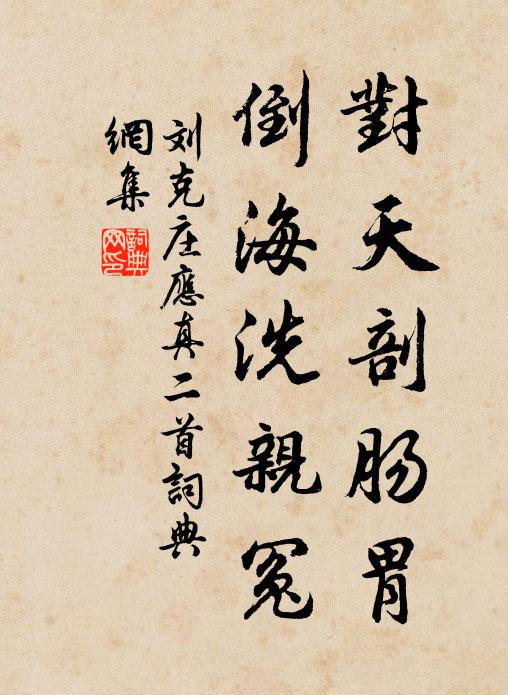 對天剖肠胃
倒海洗親冤
刘克庄應真二首詞典
網集
詞典
网印